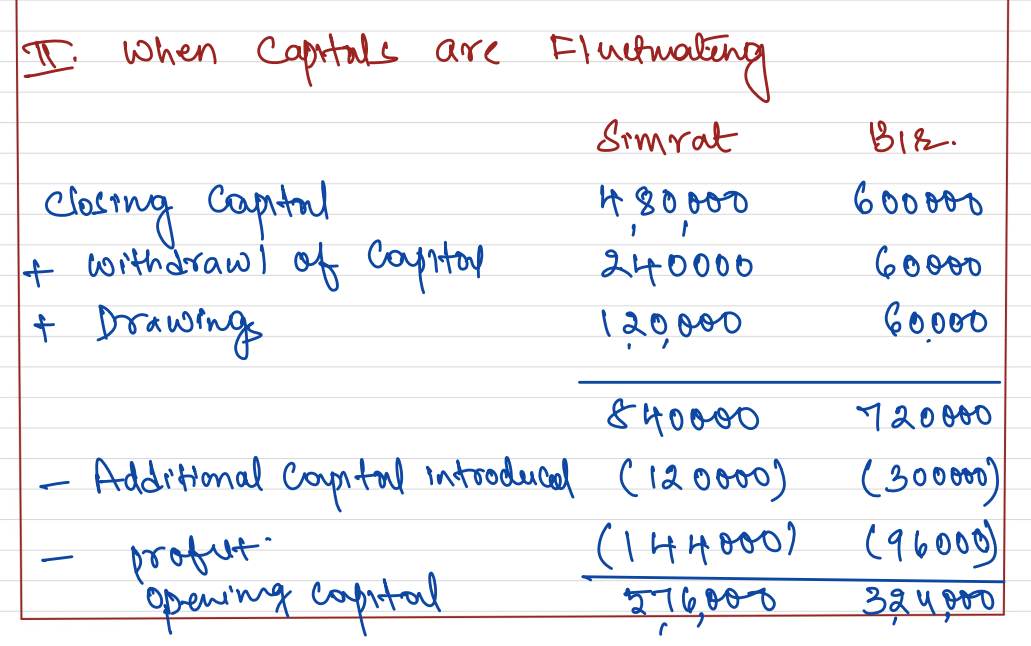 II. When Capitals are Fluctuating
Simrat Bir.
Closing Capital 480,000 600000
+ withdrawl of Capital 240000 60000
+ Drawings 120,000 60000
840000 720000
- Additional Capital introduced (120000) (300000)
- profit (144000) (96000)
opening capital 576,000 324,000